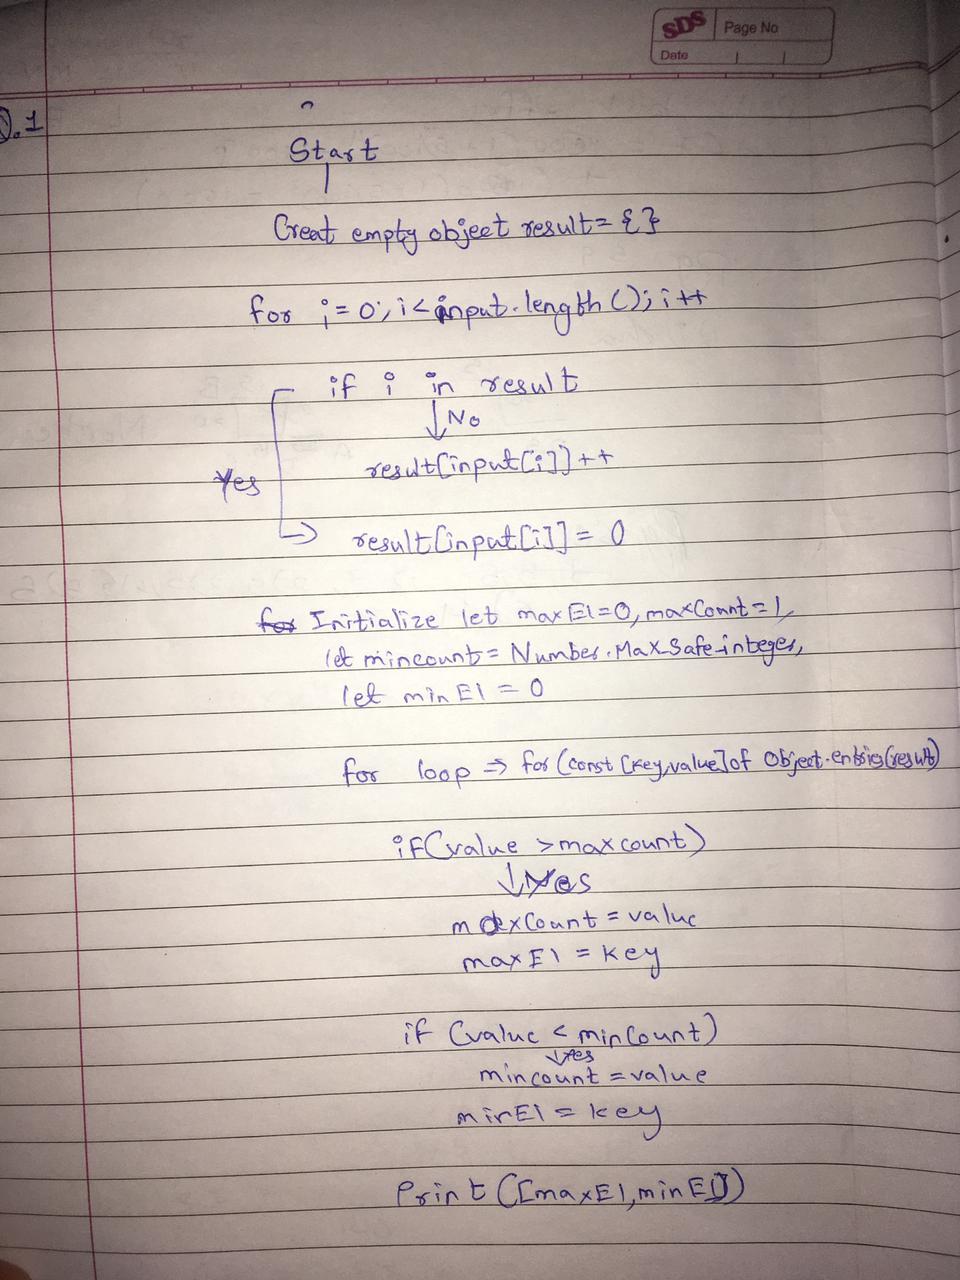 SDS Page No
Date
Q.1
Start
Creat empty object result = { }
for i = 0; i < input.length(); i++
if i in result
No
result[input[i]]++
Yes
result[input[i]] = 0
for Initialize let maxEl=0, maxCount=1,
let mincount = Number.Max-Safe-integer,
let minEl = 0
for loop => for (const [key,value] of Object.entries(result)
if (value > maxcount)
Yes
maxCount = value
maxEl = key
if (value < minCount)
Yes
mincount = value
minEl = key
Print ([maxEl, minEl])